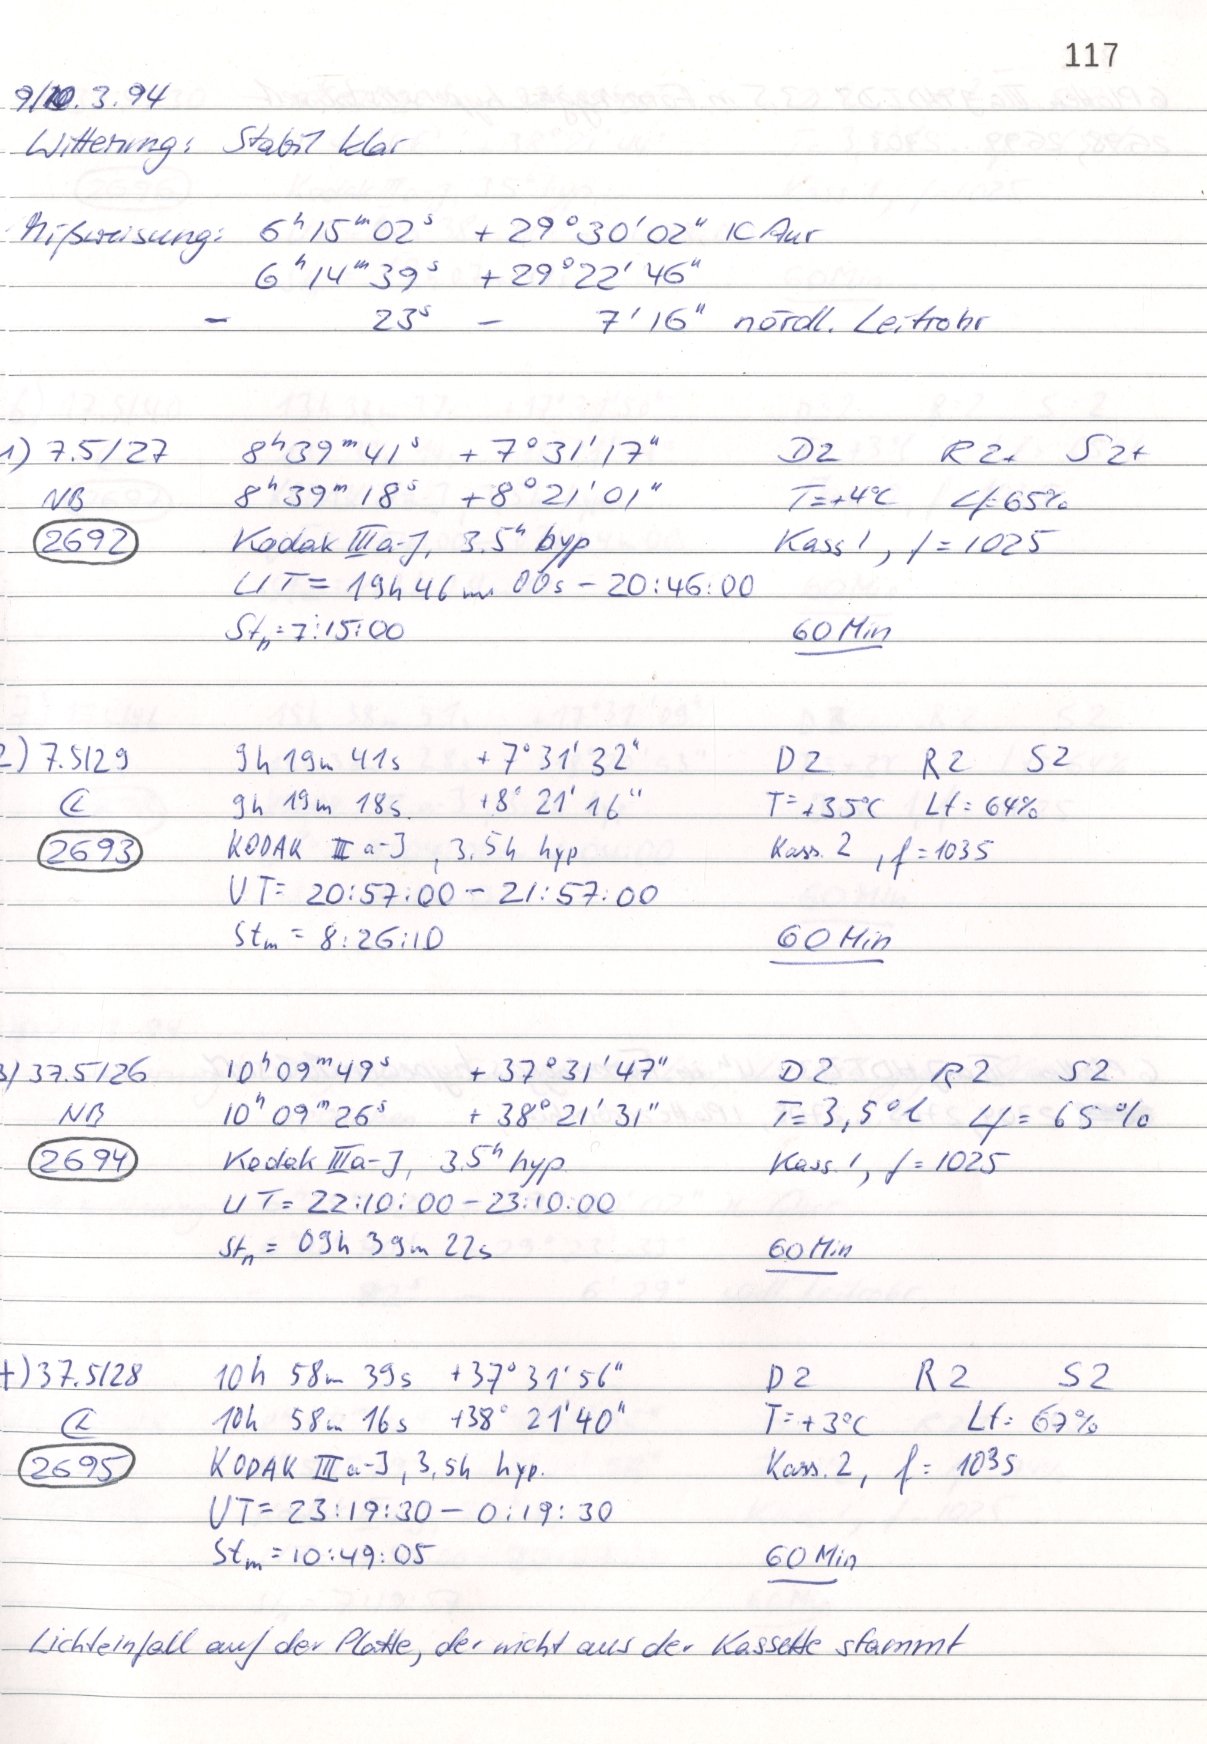 117
9/10.3.94
Witterung: Stabil klar
Mißweisung: 6ʰ15ᵐ02ˢ +29°30'02" K Aur
6ʰ14ᵐ39ˢ +29°22'46"
- 23ˢ - 7'16" nördl. Leitrohr
1) 7.5/27 8ʰ39ᵐ41ˢ +7°31'17" D2 R2+ S2+
NB 8ʰ39ᵐ18ˢ +8°21'01" T=+4°C Lf=65%
2692 Kodak IIIa-J, 3.5ʰ hyp Kass 1, f=1025
UT= 19h46m 00s - 20:46:00
Stₙ=7:15:00 60 Min
2) 7.5/29 9h 19m 41s +7°31'32" D2 R2 S2
9h 19m 18s +8°21'16" T=+3.5°C Lf=64%
2693 KODAK IIIa-J, 3.5h hyp Kass. 2, f=1035
UT= 20:57:00 - 21:57:00
Stₘ = 8:26:10 60 Min
3) 37.5/26 10ʰ09ᵐ49ˢ +37°31'47" D2 R2 S2
NB 10ʰ09ᵐ26ˢ +38°21'31" T=3,5°C Lf=65%
2694 Kodak IIIa-J, 3.5ʰ hyp Kass. 1, f=1025
UT=22:10:00-23:10:00
Stₙ = 09h 39m 22s 60 Min
4) 37.5/28 10h 58m 39s +37°31'56" D2 R2 S2
10h 58m 16s +38°21'40" T=+3°C Lf=67%
2695 KODAK IIIa-J, 3,5h hyp. Kass. 2, f=1035
UT=23:19:30 - 0:19:30
Stₘ=10:49:05 60 Min
Lichteinfall auf der Platte, der nicht aus der Kassette stammt